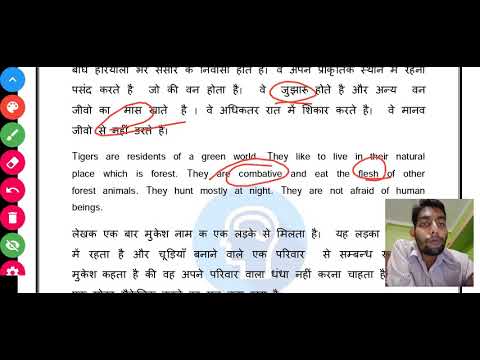 बाघ हरियाली भरे संसार के निवासी होते हैं। वे अपने प्राकृतिक स्थान में रहना
पसंद करते है जो की वन होता है। वे जुझारू होते है और अन्य वन
जीवो का मांस खाते है । वे अधिकतर रात में शिकार करते है। वे मानव
जीवो से नहीं डरते है।
Tigers are residents of a green world. They like to live in their natural
place which is forest. They are combative and eat the flesh of other
forest animals. They hunt mostly at night. They are not afraid of human
beings.
लेखक एक बार मुकेश नाम क एक लड़के से मिलता है। यह लड़का
में रहता है और चूड़ियाँ बनाने वाले एक परिवार से सम्बन्ध
मुकेश कहता है की वह अपने परिवार वाला धंधा नहीं करना चाहता